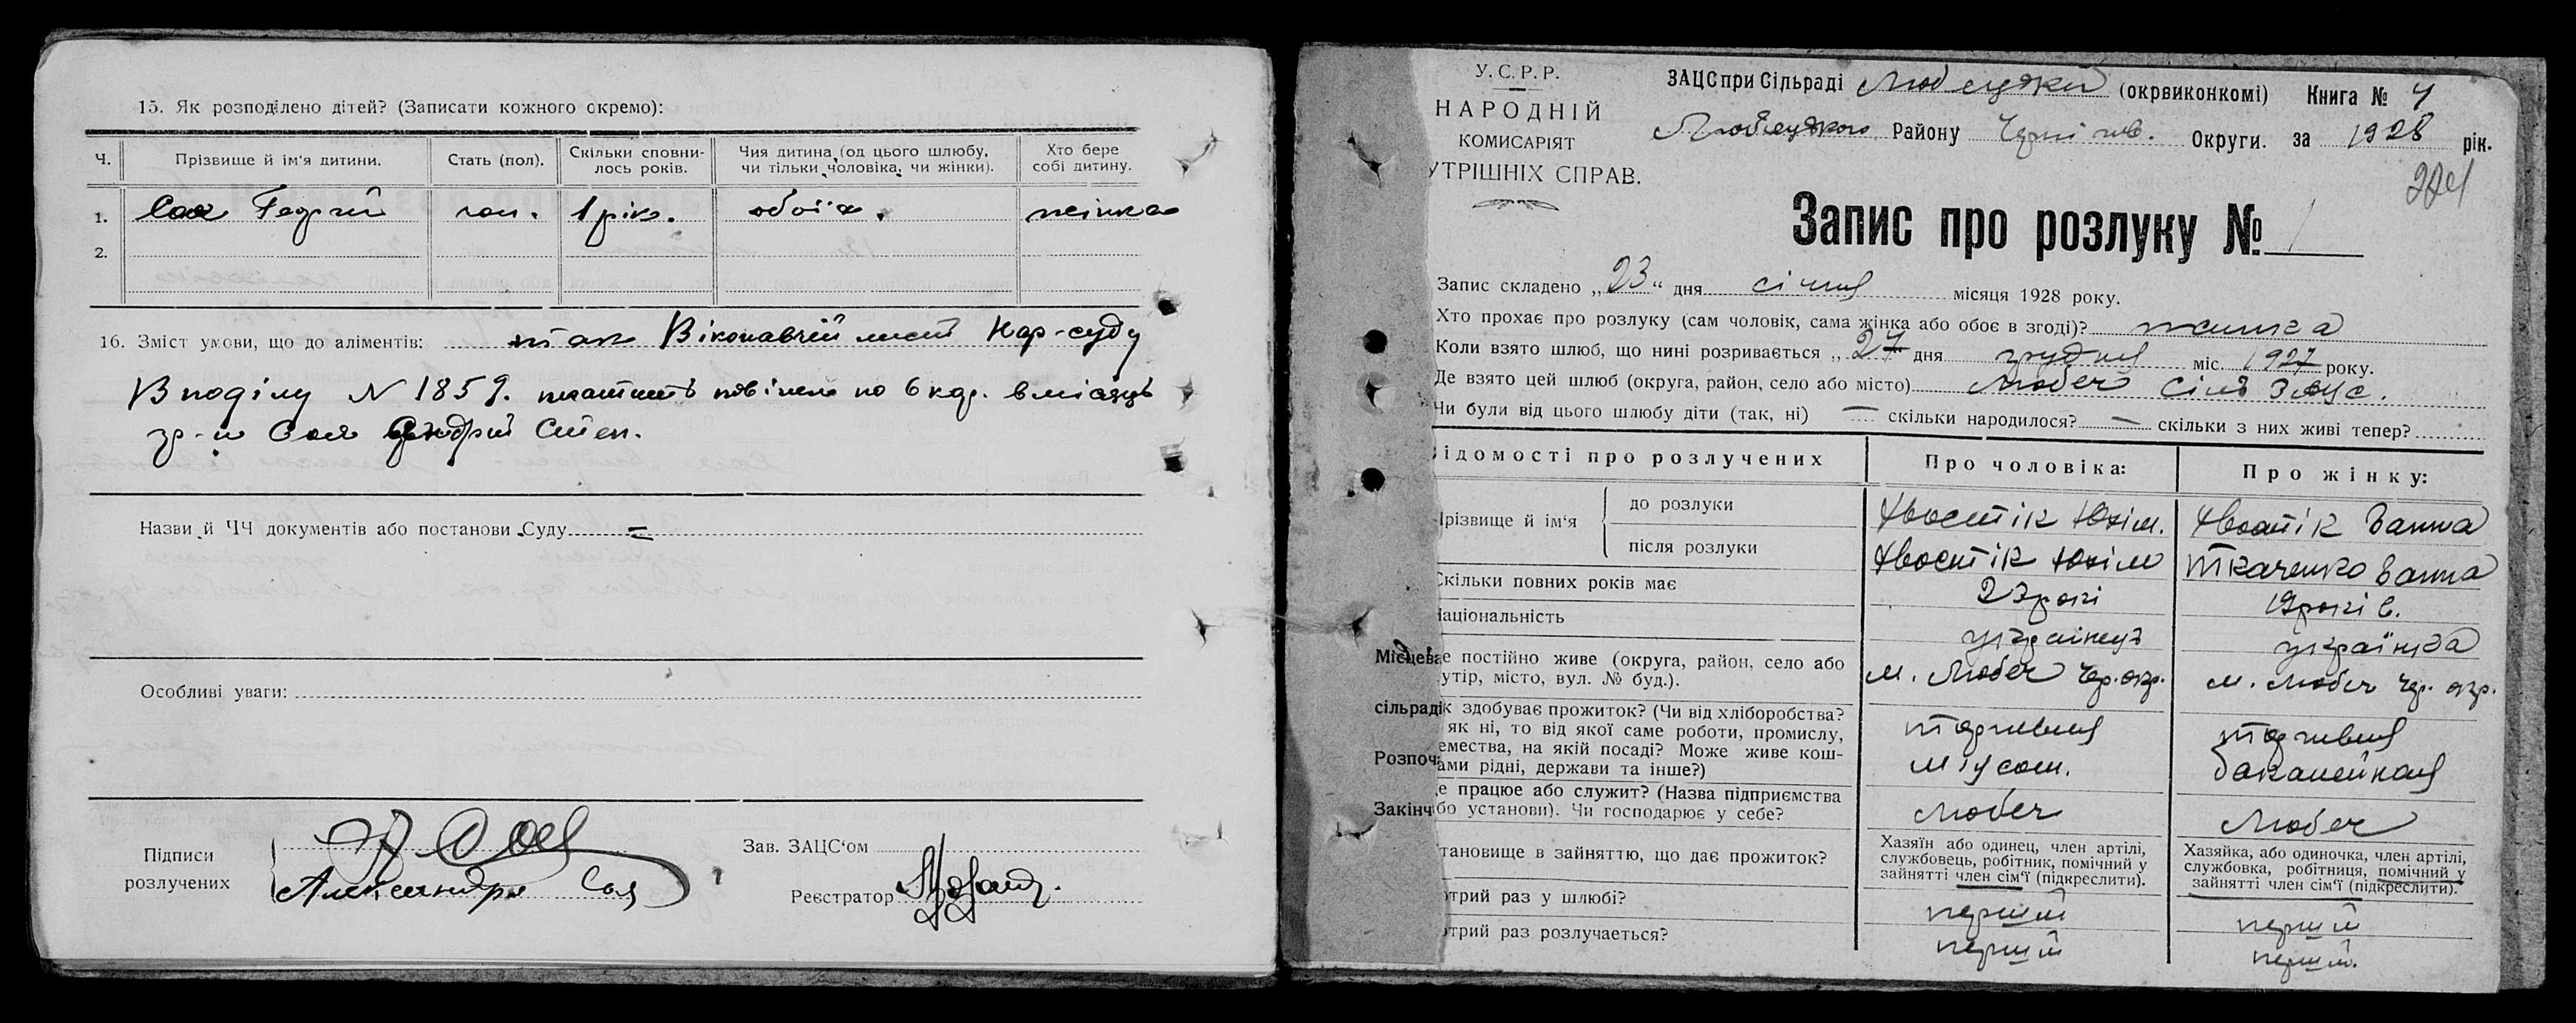 15. Як розподілено дітей? (Записати кожного окремо):
Ч. Прізвище й ім'я дитини. Стать (пол). Скільки сповнилось років. Чия дитина (од цього шлюбу, чи тільки чоловіка, чи жінки). Хто бере собі дитину.
1. Соя Георгій чол. 1 рік. обоїх. жінка
2.
16. Зміст умови, що до аліментів: так Віконавчій лист Нар-суду
В поділу N 1859. платить повинен по 6 кар. в місяць
гр-н Соя Андрій Степ.
Назви й ЧЧ документів або постанови Суду =
Особливі уваги:
Підписи розлучених
А Соя
Александра Соя
Зав. ЗАЦС'ом
Реєстратор
У.С.Р.Р.
НАРОДНІЙ
КОМИСАРІЯТ
УТРІШНІХ СПРАВ.
ЗАЦС при Сільраді Любецькій (окрвиконкомі) Книга № 4
Любецького Району Чернігів. Округи. за 1928 рік.
224
Запис про розлуку № 1
Запис складено „23" дня січня місяця 1928 року.
Хто прохає про розлуку (сам чоловік, сама жінка або обоє в згоді)? жинка
Коли взято шлюб, що нині розривається „27" дня грудня міс. 1927 року.
Де взято цей шлюб (округа, район, село або місто) Любеч сіль Загс.
Чи були від цього шлюбу діти (так, ні) — скільки народилося? — скільки з них живі тепер?
ідомості про розлучених Про чоловіка: Про жінку:
різвище й ім'я до розлуки Хвостік Юхім. Хвостік Ганна
після розлуки Хвостік Юхім Ткаченко Ганна
Скільки повних років має 23 роки 19 років.
Національність українець українка
Місцева
е постійно живе (округа, район, село або
утір, місто, вул. № буд.). м. Любеч Чер. окр. м. Любеч Чер. окр.
сільраді
к здобуває прожиток? (Чи від хліборобства?
як ні, то від якої саме роботи, промислу,
емества, на якій посаді? Може живе кош-
ами рідні, держави та інше?) торгивля мясом. торгивля бакалейная
Розпоч
Закінч
е працює або служит? (Назва підприємства
бо установи). Чи господарює у себе? Любеч Любеч
тановище в зайняттю, що дає прожиток? Хазяїн або одинец, член артілі, службовець, робітник, помічний у зайнятті член сім'ї (підкреслити). Хазяйка, або одиночка, член артілі, службовка, робітниця, помічний у зайнятті член сім'ї (підкреслити).
отрий раз у шлюбі? перший перший
отрий раз розлучається? перший перший.